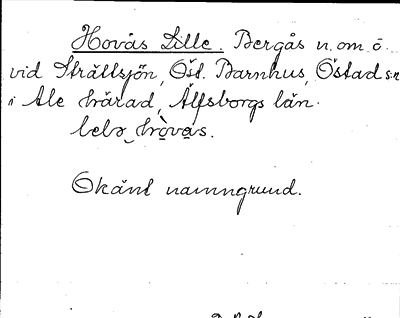 Hovås Lille. Bergås n. om ö
vid Strållsjön, Öst. Barnhus, Östad s:n
i Ale härad, Älfsborgs län.
Okänt namngrund.